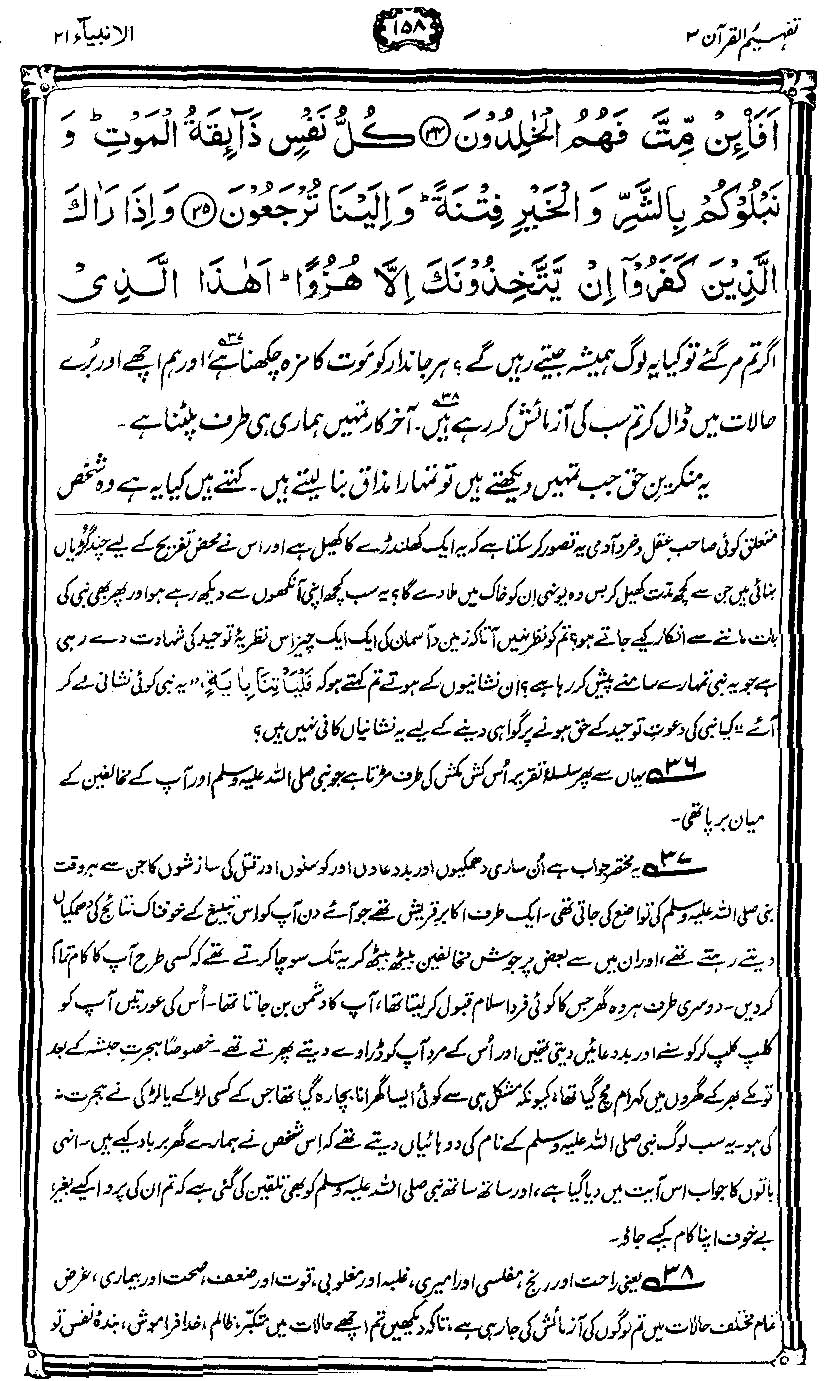 تفہیم القرآن ۳
۱۵۸
الانبیآء ۲۱
اَفَا۠ئِنْ مِّتَّ فَهُمُ الْخٰلِدُوْنَ ۳۴ كُلُّ نَفْسٍ ذَآئِقَةُ الْمَوْتِ ؕ وَ
نَبْلُوْكُمْ بِالشَّرِّ وَ الْخَيْرِ فِتْنَةً ؕ وَ اِلَيْنَا تُرْجَعُوْنَ ۳۵ وَ اِذَا رَاٰكَ
الَّذِيْنَ كَفَرُوْۤا اِنْ يَّتَّخِذُوْنَكَ اِلَّا هُزُوًا ؕ اَهٰذَا الَّذِيْ
اگر تم مر گئے تو کیا یہ لوگ ہمیشہ جیتے رہیں گے؟ ہر جاندار کو مَوت کا مزہ چکھنا ہے۳۷ اور ہم اچھے اور بُرے
حالات میں ڈال کر تم سب کی آزمائش کر رہے ہیں۳۸۔ آخر کار تمہیں ہماری ہی طرف پلٹنا ہے۔
یہ منکرینِ حق جب تمہیں دیکھتے ہیں تو تمہارا مذاق بنا لیتے ہیں۔ کہتے ہیں کیا یہ ہے وہ شخص
متعلق کوئی صاحبِ عقل و خرد آدمی یہ تصور کر سکتا ہے کہ یہ ایک کھلنڈرے کا کھیل ہے اور اس نے محض تفریح کے لیے چند گڑیاں
بنائی ہیں جن سے کچھ مدت کھیل کر بس وہ یونہی ان کو خاک میں ملا دے گا؟ یہ سب کچھ اپنی آنکھوں سے دیکھ رہے ہو اور پھر بھی نبی کی
بات ماننے سے انکار کیے جاتے ہو؟ تم کو نظر نہیں آتا کہ زمین و آسمان کی ایک ایک چیز اس نظریۂ توحید کی شہادت دے رہی
ہے جو یہ نبی تمہارے سامنے پیش کر رہا ہے؟ ان نشانیوں کے ہوتے تم کہتے ہو کہ فَلْيَاْتِنَا بِاٰيَةٍ، "یہ نبی کوئی نشانی لے کر
آئے" کیا نبی کی دعوتِ توحید کے حق ہونے پر گواہی دینے کے لیے یہ نشانیاں کافی نہیں ہیں؟
۳۶ یہاں سے پھر سلسلۂ تقریر اُس کش مکش کی طرف مڑتا ہے جو نبی صلی اللہ علیہ وسلم اور آپ کے مخالفین کے
میان برپا تھی۔
۳۷ یہ مختصر جواب ہے اُن ساری دھمکیوں اور بددعاؤں اور کوسنوں اور قتل کی سازشوں کا جن سے ہر وقت
نبی صلی اللہ علیہ وسلم کی تواضع کی جاتی تھی۔ ایک طرف اکابر قریش تھے جو آئے دن آپ کو اِس تبلیغ کے خوفناک نتائج کی دھمکیاں
دیتے رہتے تھے، اور ان میں سے بعض پُرجوش مخالفین بیٹھ بیٹھ کر یہ تک سوچا کرتے تھے کہ کسی طرح آپ کا کام تمام
کر دیں۔ دوسری طرف ہر وہ گھر جس کا کوئی فرد اسلام قبول کر لیتا تھا، آپ کا دشمن بن جاتا تھا۔ اُس کی عورتیں آپ کو
کلپ کلپ کر کوسنے اور بددعائیں دیتی تھیں اور اُس کے مرد آپ کو ڈراوے دیتے پھرتے تھے۔ خصوصًا ہجرتِ حبشہ کے بعد
تو مکے بھر کے گھروں میں کہرام مچ گیا تھا، کیونکہ مشکل ہی سے کوئی ایسا گھرانا بچا رہ گیا تھا جس کے کسی لڑکے یا لڑکی نے ہجرت نہ
کی ہو۔ یہ سب لوگ نبی صلی اللہ علیہ وسلم کے نام کی دوہائیاں دیتے تھے کہ اِس شخص نے ہمارے گھر برباد کیے ہیں۔ انہی
باتوں کا جواب اس آیت میں دیا گیا ہے، اور ساتھ ساتھ نبی صلی اللہ علیہ وسلم کو بھی تلقین کی گئی ہے کہ تم ان کی پروا کیے بغیر،
بے خوف اپنا کام کیے جاؤ۔
۳۸ یعنی راحت اور رنج، مفلسی اور امیری، غلبہ اور مغلوبی، قوت اور ضعف، صحت اور بیماری، غرض
تمام مختلف حالات میں تم لوگوں کی آزمائش کی جا رہی ہے، تاکہ دیکھیں تم اچھے حالات میں متکبّر، ظالم، خدا فراموش، بندۂ نفس تو